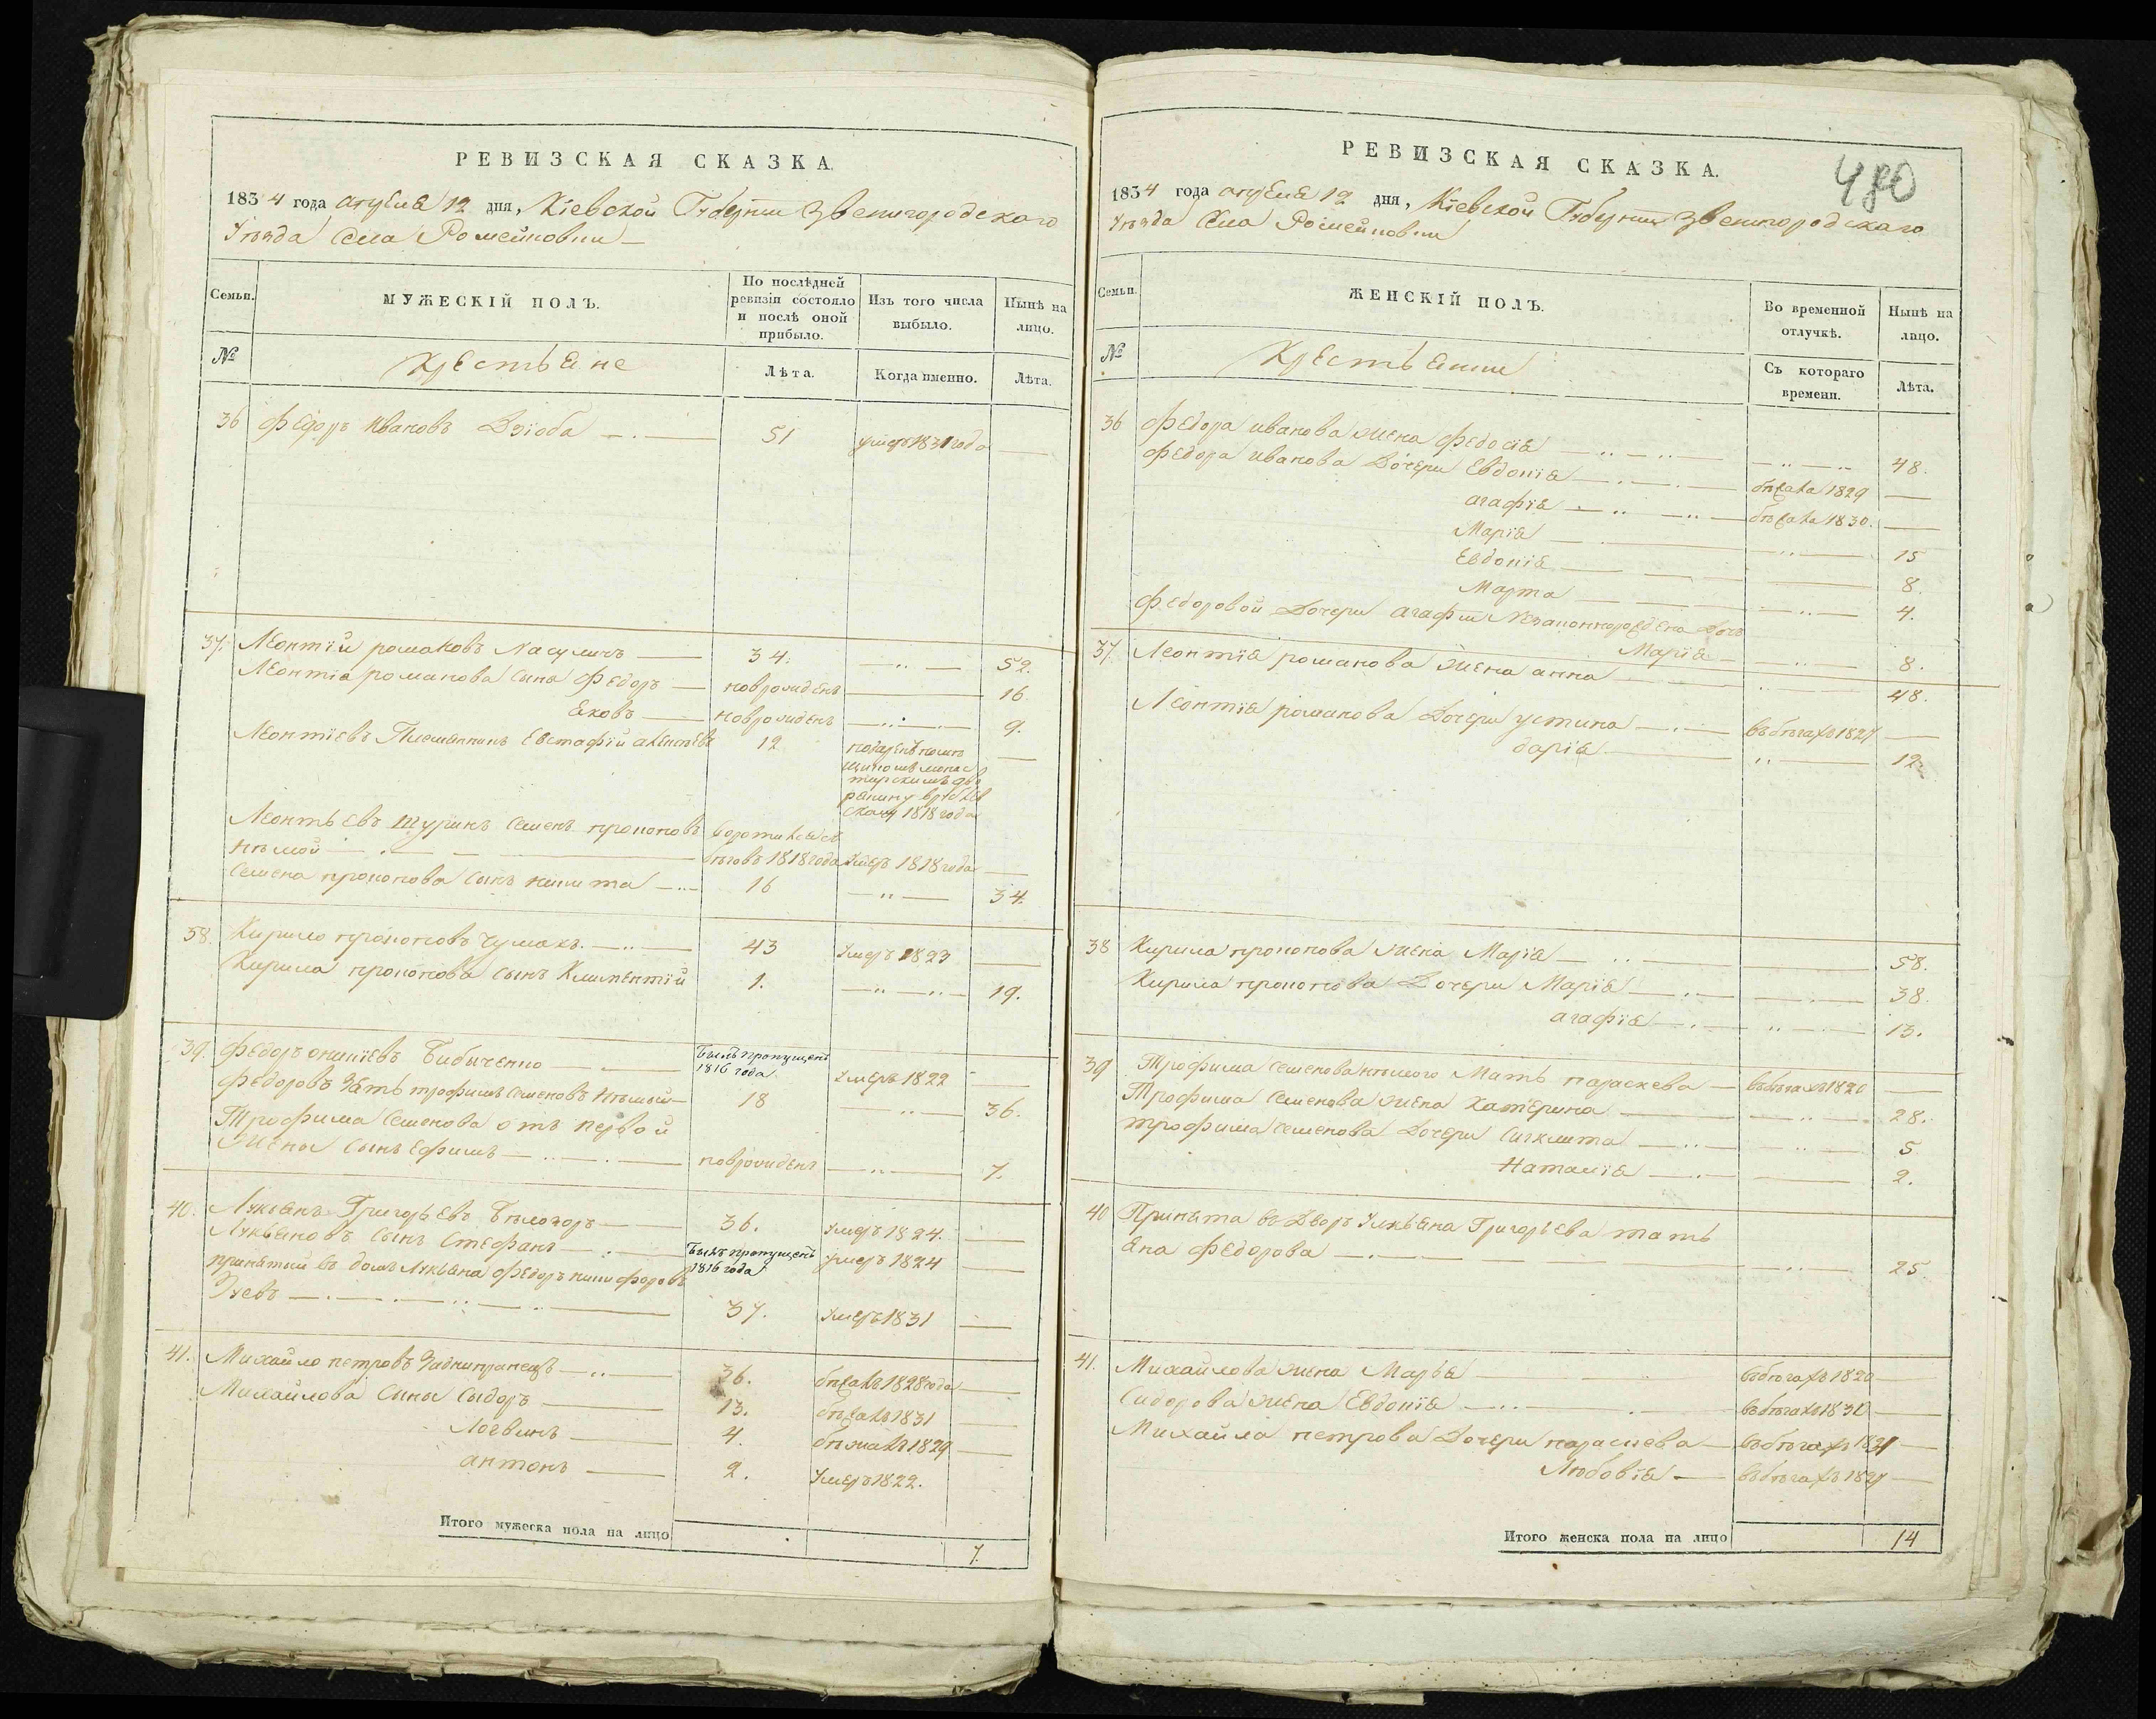 РЕВИЗСКАЯ СКАЗКА.
1834 года апреля 12 дня, Кіевской Губерніи Звенигородскаго
Уѣзда Села Ромейковки
Семьи.
МУЖЕСКІЙ ПОЛЪ.
По послѣдней ревизіи состояло и послѣ оной прибыло.
Изъ того числа выбыло.
Нынѣ на лицо.
№
Крестьяне
Лѣта.
Когда именно.
Лѣта.
36 Федоръ Ивановъ Дзюба 51 умеръ 1831 года
37. Леонтій романовъ 34. 52.
Леонтія романова сынъ Федоръ новрожденъ 16
Яковъ новрожденъ 9.
Леонтіевъ Племянникъ Евстафій 12
1818 года
Леонтьевъ Шуринъ Семенъ прокоповъ
нѣмой 1818 года умеръ 1818 года
Семена прокопова сынъ никита 16 34.
38. Кирило прокоповъ Чумакъ 43 умеръ 1823
Кирила прокопова сынъ Климентій 1. 19.
39. Федоръ Бибиченко Былъ пропущенъ 1816 года умеръ 1822
Федоровъ Зять трофимъ Семеновъ Нѣмый 18 36.
Трофима Семенова отъ первой
жены сынъ Ефимъ новрожденъ 7.
40. Лукьянъ Григорьевъ Бѣлозоръ 36. умеръ 1824.
Лукьяновъ сынъ Стефанъ Былъ пропущенъ 1816 года умеръ 1824
принятый въ домъ Лукьяна Федоръ никифоровъ
37. умеръ 1831
41. Михайло петровъ 36. 1828 года
Михайлова сыны Сыдоръ 13. 1831
Логвинъ 4. бѣжалъ 1829
антонъ 2. умеръ 1822.
Итого мужеска пола на лицо 7.
480
РЕВИЗСКАЯ СКАЗКА.
1834 года апреля 12 дня, Кіевской Губерніи Звенигородскаго
Уѣзда Села Ромейковки
Семьи.
ЖЕНСКІЙ ПОЛЪ.
Во временной отлучкѣ.
Нынѣ на лицо.
№
Крестьянки
Съ котораго времени.
Лѣта.
36 Федора иванова жена Федосія 48.
Федора иванова Дочери Евдокія 1829
агафія 1830.
Марія 15
Евдокія 8.
Марта 4.
Федоровой Дочери агафіи
Марія 8.
37. Леонтія романова жена анна 48.
Леонтія романова Дочери устина въ бѣгахъ 1827
дарія 12
38 Кирила прокопова жена Марія 58.
Кирила прокопова Дочери Марія 38.
агафія 13.
39 Трофима Семенова нѣмого Мать параскева въ бѣгахъ 1820
Трофима Семенова жена Катерина 28.
трофима семенова Дочери 5
Наталія 2.
40 Принята въ Дворъ Лукьяна Григорьева тать
яна Федорова 25.
41. Михайлова жена Марья въ бѣгахъ 1820
Сидорова жена Евдокія въ бѣгахъ 1831
Михайла петрова Дочери параскева въ бѣгахъ 1831
Любовія въ бѣгахъ 1827
Итого женска пола на лицо 14